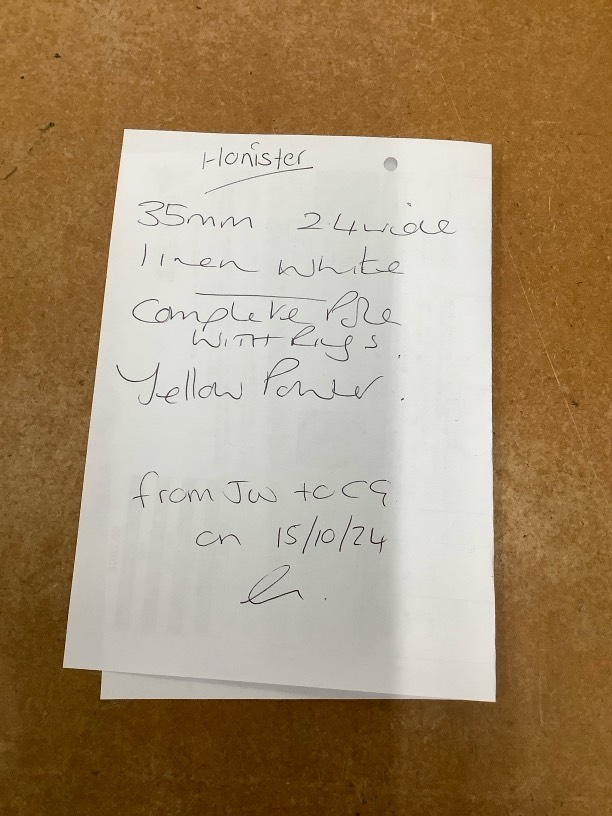 Honister
35mm 24 wide
linen White
Complete Pole
WITH Rings.
Yellow Power.
from JW to CG
on 15/10/24